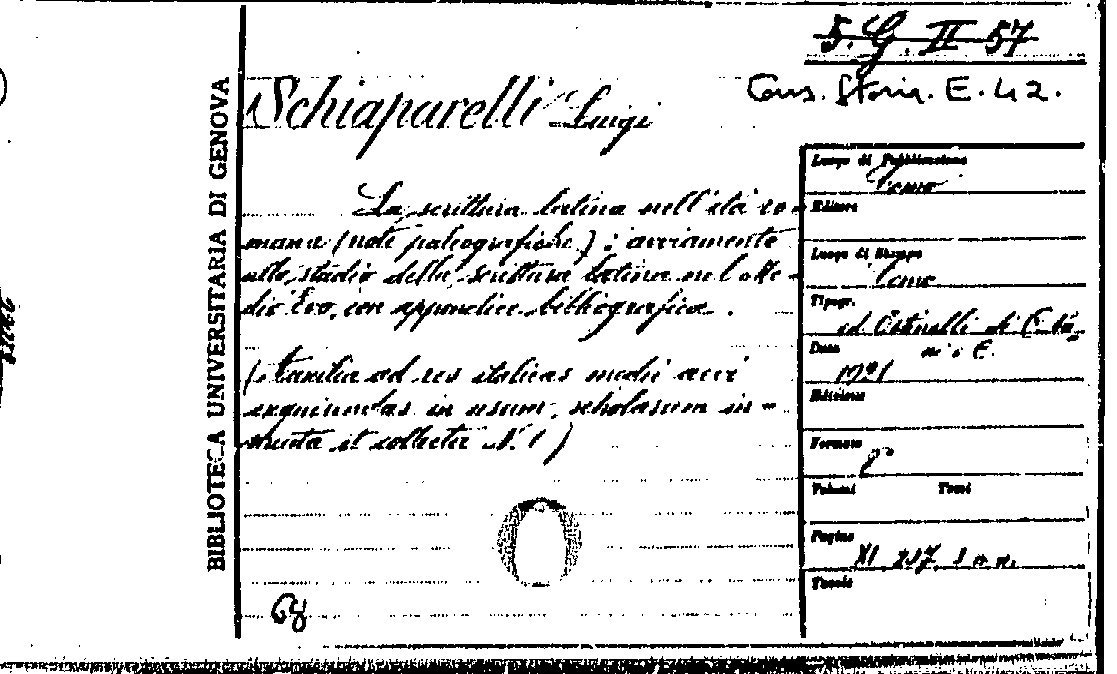 5. G. II 57
Cons. Storia. E. 42.
BIBLIOTECA UNIVERSITARIA DI GENOVA
Schiaparelli Luigi
La scrittura latina nell'età ro-
mana (note paleografiche) : avviamento
allo studio della scrittura latina nel Me-
dio Evo, con appendice bibliografica.
(Auxilia ad res italicas medii aevi
exquirendas in usum scholarum in-
structa et collecta N. 1)
68
Luogo di Pubblicazione
Como
Editore
Luogo di Stampa
Como
Tipogr.
ed Ostinelli di C. Na-
ni e C.
Data
1921
Edizione
Formato
8°
Volumi Tomi
Pagine
XI 217 1 n. n.
Tavole